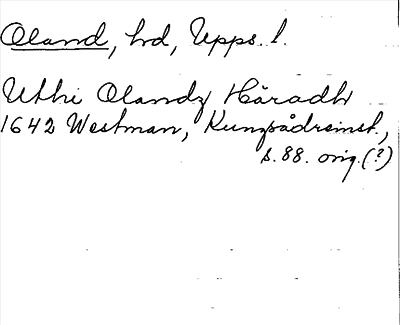 Oland, hd, Upps. l.
Uthi Olandz Häradh
1642 Westman, Kungsådreinst.,
s. 88. orig. (?)